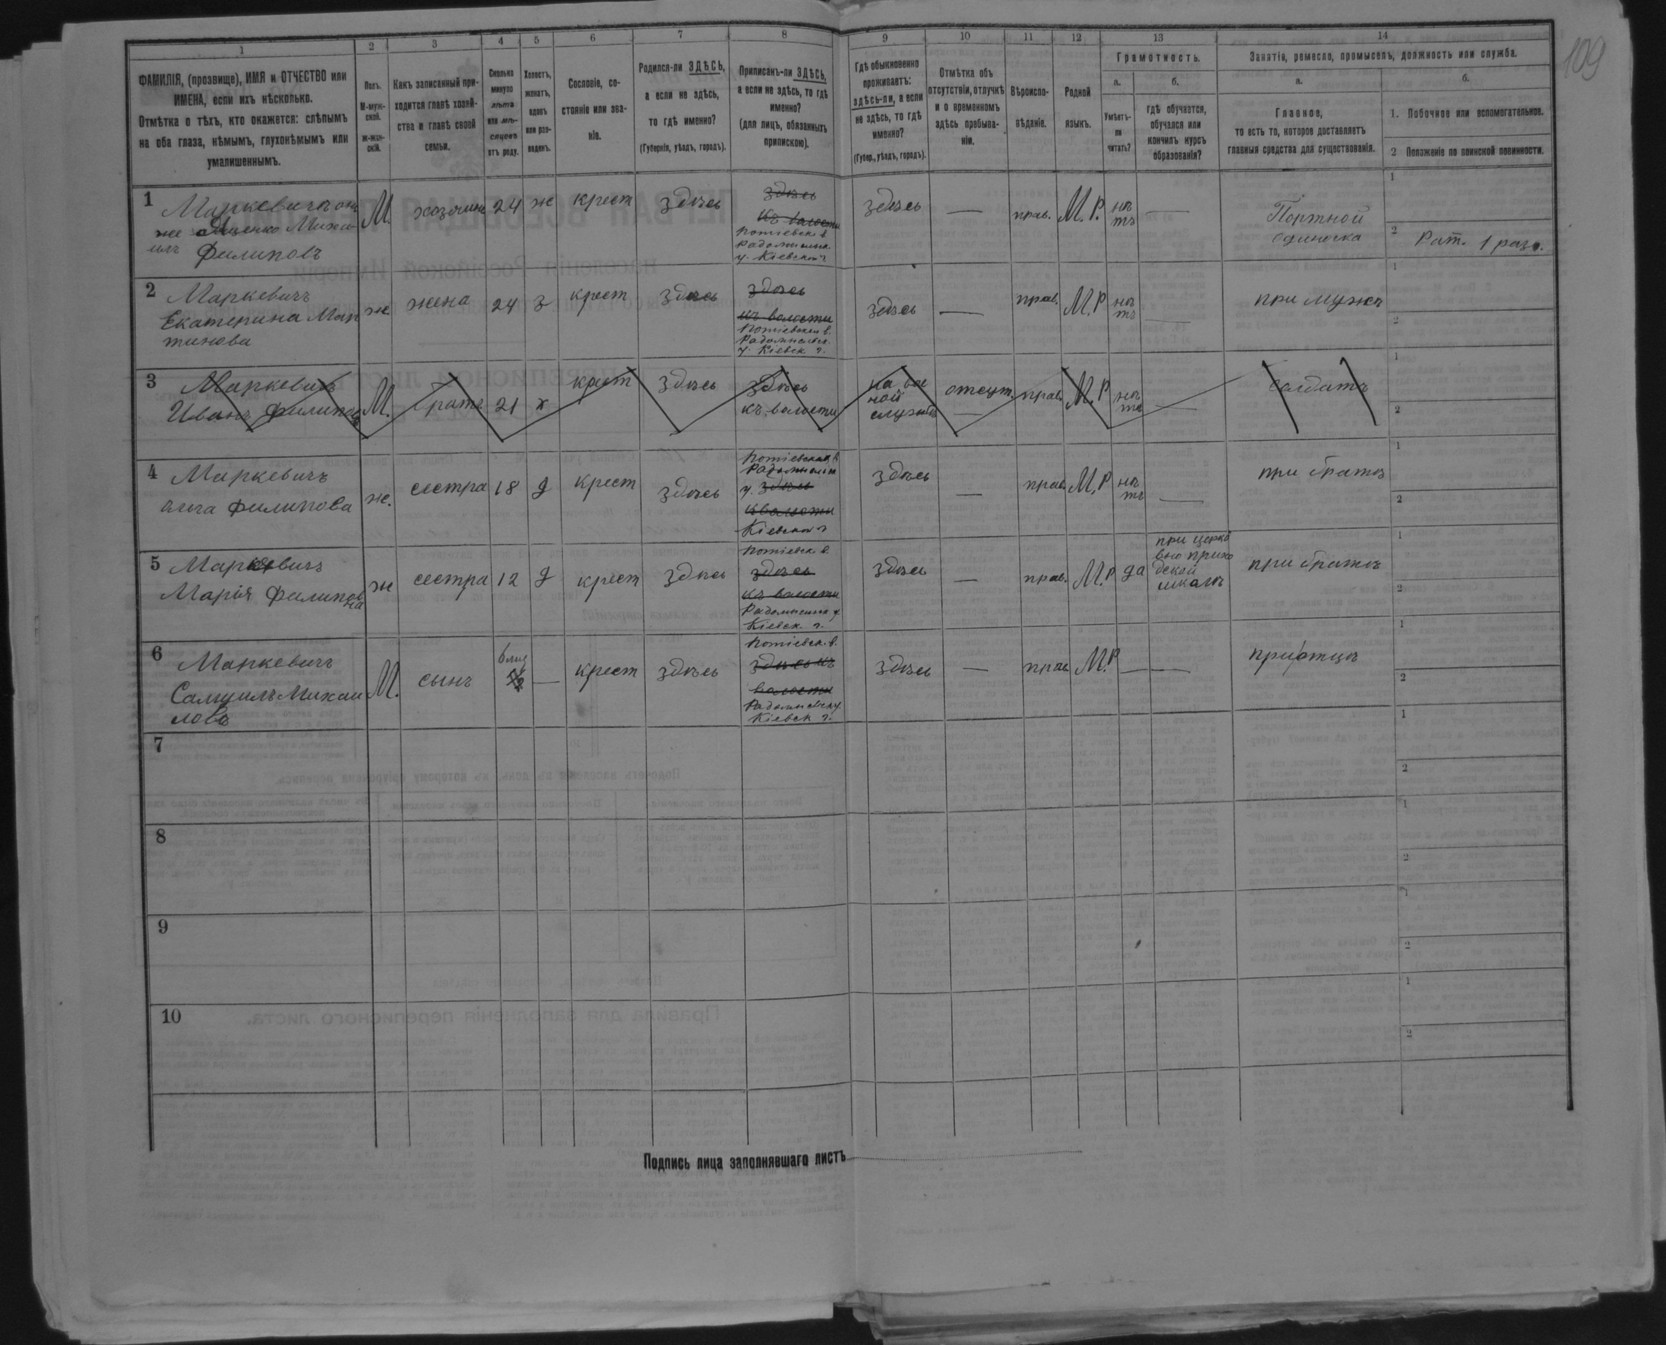 109
1 2 3 4 5 6 7 8 9 10 11 12 13 14
ФАМИЛІЯ, (прозвище), ИМЯ и ОТЧЕСТВО или
ИМЕНА, если ихъ нѣсколько.
Отмѣтка о тѣхъ, кто окажется: слѣпымъ
на оба глаза, нѣмымъ, глухонѣмымъ или
умалишеннымъ.
Полъ.
М-муж-
ской.
Ж-жен-
скій.
Какъ записанный при-
ходится главѣ хозяй-
ства и главѣ своей
семьи.
Сколько
минуло
лѣтъ
или мѣ-
сяцевъ
отъ роду.
Холостъ,
женатъ,
вдовъ
или раз-
веденъ.
Сословіе, со-
стояніе или зва-
ніе.
Родился-ли ЗДѢСЬ,
а если не здѣсь,
то гдѣ именно?
(Губернія, уѣздъ, городъ).
Приписанъ-ли ЗДѢСЬ,
а если не здѣсь, то гдѣ
именно?
(для лицъ, обязанныхъ
припискою).
Гдѣ обыкновенно
проживаетъ:
здѣсь-ли, а если
не здѣсь, то гдѣ
именно?
(Губер., уѣздъ, городъ).
Отмѣтка объ
отсутствіи, отлучкѣ
и о временномъ
здѣсь пребыва-
ніи.
Вѣроиспо-
вѣданіе.
Родной
языкъ.
Грамотность.
а.
Умѣетъ-
ли
читать?
б.
гдѣ обучается,
обучался или
кончилъ курсъ
образованія?
Занятія, ремесло, промыселъ, должность или служба.
а.
Главное,
то есть то, которое доставляетъ
главныя средства для существованія.
б.
1. Побочное или вспомогательное.
2 Положеніе по воинской повинности.
1 Маркевичъ онъ
же Миха-
илъ Филиповъ
М хозяинъ 24 ж крест здѣсь
здѣсь
къ волости
Потіевск. в.
Радомысльск
у. Кіевской г
здѣсь — прав. М.Р. нѣ
тъ —
Портной
одиночка
1
2 Рат. 1 разр.
2 Маркевичъ
Екатерина Мар
тинова
ж жена 24 з крест здѣсь
здѣсь
къ волости
Потіевская в.
Радомысльск.
у. Кіевск г.
здѣсь — прав. М.Р нѣ
тъ —
при мужѣ
1
2
3 Маркевичъ
Иванъ Филиповъ
М. братъ 21 х крест здѣсь
здѣсь
къ волости
на вое
ной
службѣ
отсут.
— прав. М.Р нѣ
тъ —
солдатъ
1
2
4 Маркевичъ
анна Филипова
ж. сестра 18 д крест здѣсь
Потіевская в.
Радомысльск
у. здѣсь
къ волости
Кіевской г
здѣсь — прав. М.Р нѣ
тъ —
при братѣ
1
2
5 Маркевичъ
Марія Филипов
на
ж сестра 12 д крест здѣсь
Потіевск. в
здѣсь
къ волости
Радомысльск у
Кіевск. г.
здѣсь — прав. М.Р да
при церко
вно прихо
дской
школѣ
при братѣ
1
2
6 Маркевичъ
Самуилъ Михаи
ловъ
М. сынъ — крест здѣсь
Потіевск. в.
здѣсь къ
волости
Радомысльск у
Кіевск г.
здѣсь — прав М.Р — —
при отцѣ
1
2
7
1
2
8
1
2
9
1
2
10
1
2
Подпись лица заполнявшаго листъ